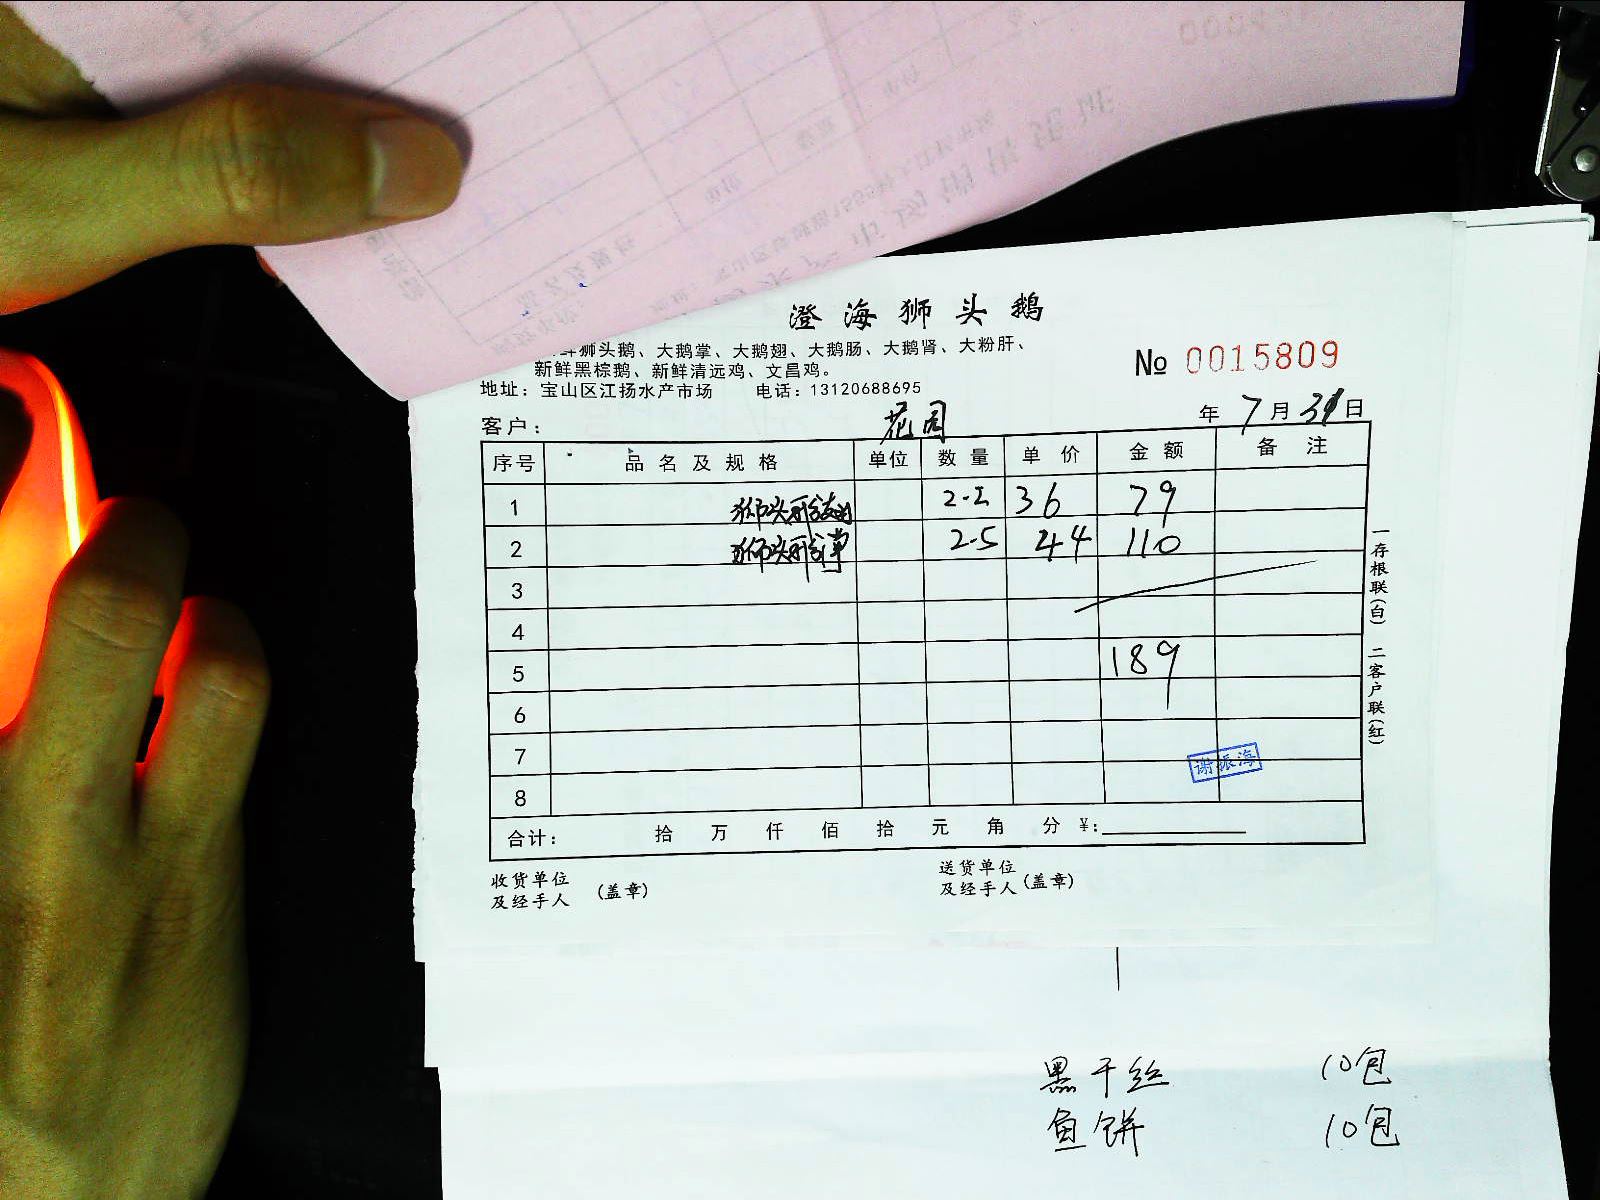 澄海狮头鹅
狮头鹅、大鹅掌、大鹅翅、大鹅肠、大鹅肾、大粉肝、
新鲜黑棕鹅、新鲜清远鸡、文昌鸡。
№ 0015809
地址：宝山区江扬水产市场 电话：13120688695
客户： 花园 年 7月31日
序号 品名及规格 单位 数量 单价 金额 备注
1 狮头鹅翅 2.2 36 79
2 狮头鹅掌 2.5 44 110
3
4
5 189
6
7
谢振海
8
合计： 拾 万 仟 佰 拾 元 角 分 ¥：
收货单位
及经手人 (盖章)
送货单位
及经手人 (盖章)
一存根联(白) 二客户联(红)
黑干丝 10包
鱼饼 10包